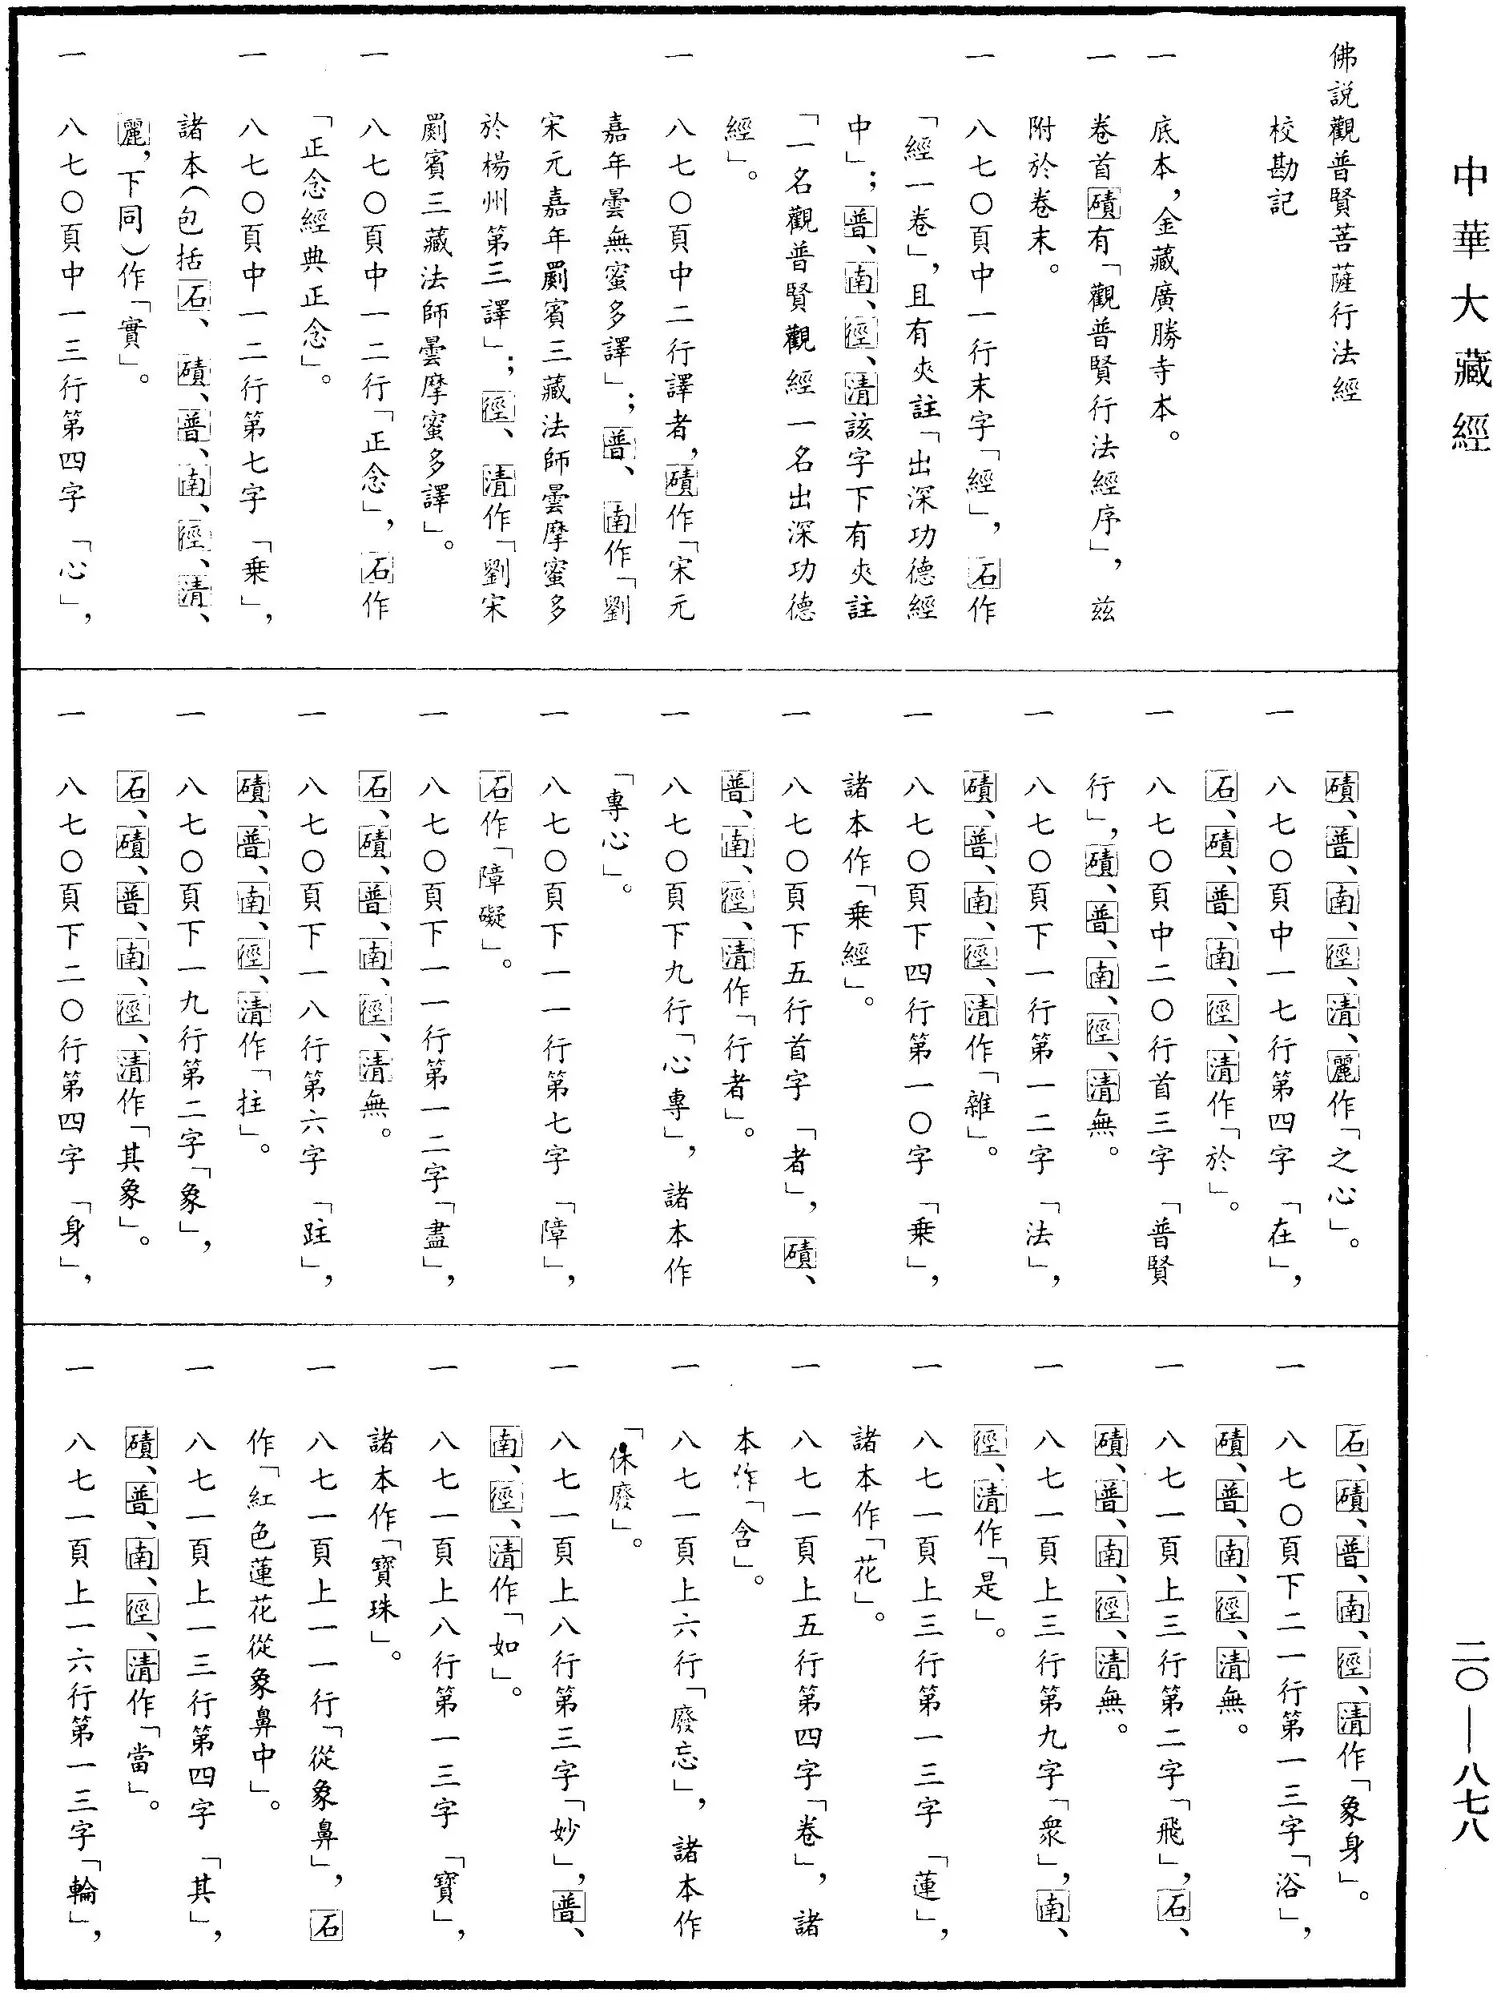 中華大藏經
二〇—八七八
佛説觀普賢菩薩行法經
校勘記
一 底本，金藏廣勝寺本。
一 卷首磧有「觀普賢行法經序」，兹
附於卷末。
一 八七〇頁中一行末字「經」，石作
「經一卷」，且有夾註「出深功德經
中」；普、南、徑、清該字下有夾註
「一名觀普賢觀經一名出深功德
經」。
一 八七〇頁中二行譯者，磧作「宋元
嘉年曇無蜜多譯」；普、南作「劉
宋元嘉年罽賓三藏法師曇摩蜜多
於楊州第三譯」；徑、清作「劉宋
罽賓三藏法師曇摩蜜多譯」。
一 八七〇頁中一二行「正念」，石作
「正念經典正念」。
一 八七〇頁中一二行第七字「乗」，
諸本（包括石、磧、普、南、徑、清、
麗，下同）作「實」。
一 八七〇頁中一三行第四字「心」，
磧、普、南、徑、清、麗作「之心」。
一 八七〇頁中一七行第四字「在」，
石、磧、普、南、徑、清作「於」。
一 八七〇頁中二〇行首三字「普賢
行」，磧、普、南、徑、清無。
一 八七〇頁下一行第一二字「法」，
磧、普、南、徑、清作「雜」。
一 八七〇頁下四行第一〇字「乗」，
諸本作「乗經」。
一 八七〇頁下五行首字「者」，磧、
普、南、徑、清作「行者」。
一 八七〇頁下九行「心專」，諸本作
「專心」。
一 八七〇頁下一一行第七字「障」，
石作「障礙」。
一 八七〇頁下一一行第一二字「盡」，
石、磧、普、南、徑、清無。
一 八七〇頁下一八行第六字「跓」，
磧、普、南、徑、清作「拄」。
一 八七〇頁下一九行第二字「象」，
石、磧、普、南、徑、清作「其象」。
一 八七〇頁下二〇行第四字「身」，
石、磧、普、南、徑、清作「象身」。
一 八七〇頁下二一行第一三字「浴」，
磧、普、南、徑、清無。
一 八七一頁上三行第二字「飛」，石、
磧、普、南、徑、清無。
一 八七一頁上三行第九字「衆」，南、
徑、清作「是」。
一 八七一頁上三行第一三字「蓮」，
諸本作「花」。
一 八七一頁上五行第四字「卷」，諸
本作「含」。
一 八七一頁上六行「廢忘」，諸本作
「休廢」。
一 八七一頁上八行第三字「妙」，普、
南、徑、清作「如」。
一 八七一頁上八行第一三字「寶」，
諸本作「寶珠」。
一 八七一頁上一一行「從象鼻」，石
作「紅色蓮花從象鼻中」。
一 八七一頁上一三行第四字「其」，
磧、普、南、徑、清作「當」。
一 八七一頁上一六行第一三字「輪」，